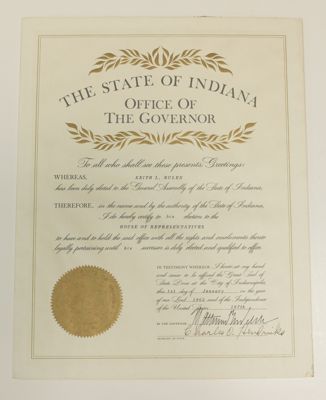 THE STATE OF INDIANA
OFFICE OF
THE GOVERNOR
To all who shall see these presents, Greetings:
WHEREAS, KEITH L. BULEN
has been duly elected to the General Assembly of the State of Indiana,
THEREFORE, in the name and by the authority of the State of Indiana,
I do hereby certify to his election to the
HOUSE OF REPRESENTATIVES
to have and to hold the said office with all the rights and emoluments thereto
legally pertaining until his successor is duly elected and qualified to office.
IN TESTIMONY WHEREOF, I have set my hand
and cause to be affixed the Great Seal of
State Done at the City of Indianapolis,
this 1st day of January in the year
of our Lord and of the Independence
of the United States 187th
BY THE GOVERNOR
Charles O. Hendricks
SECRETARY OF STATE